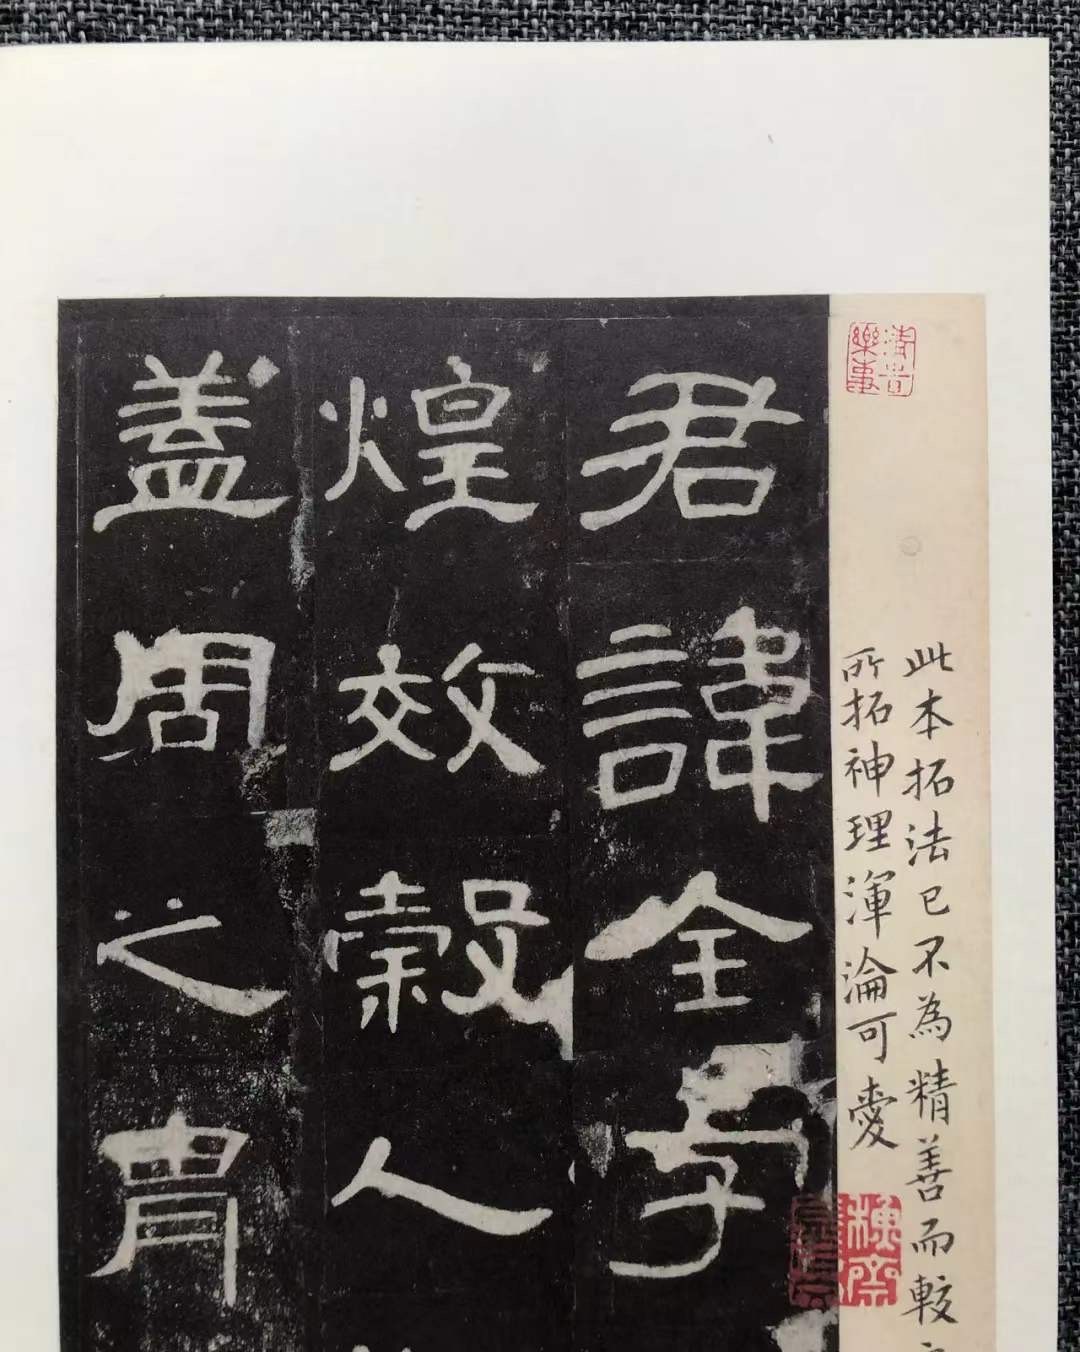 君諱全字
煌效穀人
盖周之胄
樂事
此本拓法已不為精善而較
所拓神理渾淪可愛